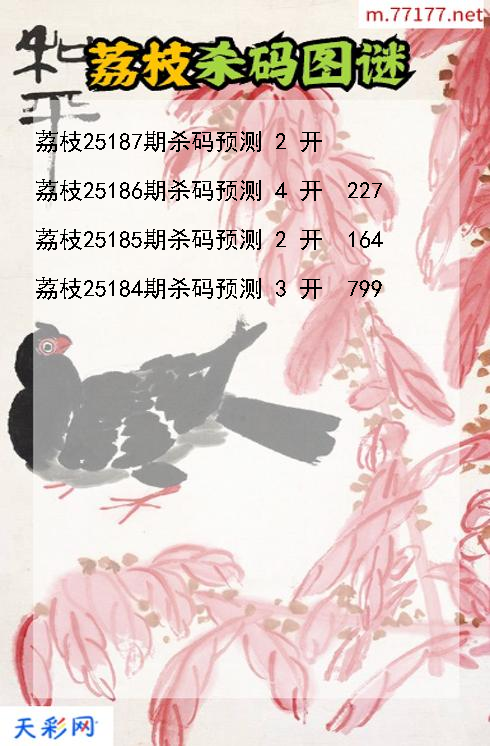 m.77177.net
和平
荔枝杀码图谜
荔枝25187期杀码预测 2 开
荔枝25186期杀码预测 4 开 227
荔枝25185期杀码预测 2 开 164
荔枝25184期杀码预测 3 开 799
天彩网